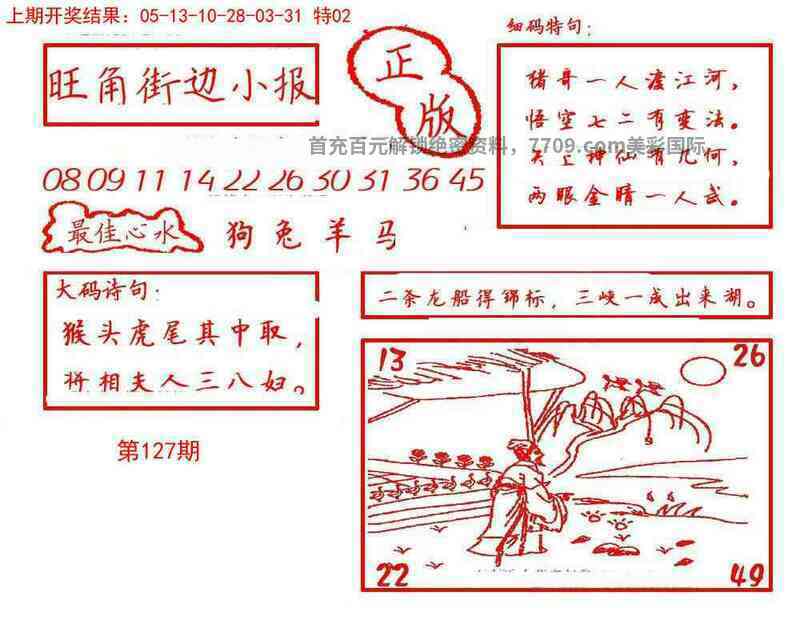 上期开奖结果：05-13-10-28-03-31 特02
旺角街边小报
正版
细码特句：
猪哥一人渡江河，
悟空七二有变法。
天上神仙有几何，
两眼金睛一人武。
首充百元解锁绝密资料，7709.com美彩国际
08 09 11 14 22 26 30 31 36 45
最佳心水
狗兔羊马
大码诗句：
猴头虎尾其中取，
将相夫人三八妇。
二条龙船得锦标，三峡一成出来湖。
第127期
13
26
22
49